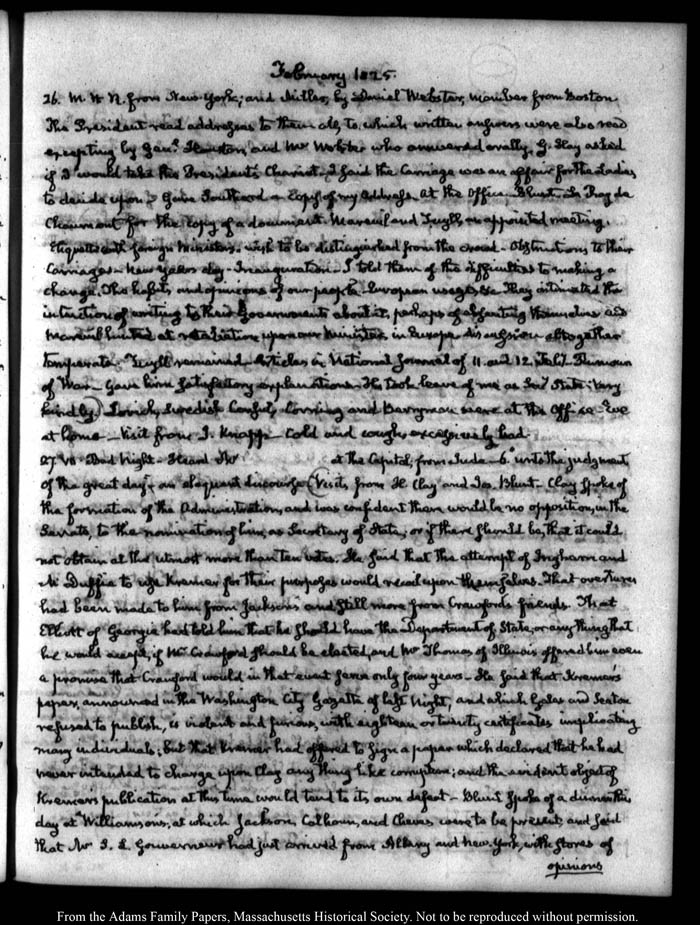 February 1825.
26. from New York; and Miller, by Daniel Webster, member from Boston
The President read addresses to them all, to which written answers were also read
excepting by Genl. Houston, and Mr Webster who answered orally. G. Hay asked
if I would take the President's Chariot. I said the Carriage was an affair for the Ladies
to decide upon. Gave Southard a Copy of my Address. At the Office, Blunt. Le Ray de
Chaumont for the copy of a document. Mareuil and Tuyll, an appointed meeting.
Etiquette with foreign Ministers. wish to be distinguished from the crowd. Obstructions to their
Carriages. New Years day. Inauguration. I told them of the difficulties to making a
change. The habits and opinions of our people. European usages &c. They intimated the
intention of writing to their Governments about it, perhaps of absenting themselves and
Mareuil hinted at retaliation upon our Ministers in Europe. discussion altogether
temperate. Tuyll remained. Articles in National Journal of 11. and 12. Feby. Rumour
of War. Gave him satisfactory explanations. He took leave of me as Secy State; very
kindly. Swedish Consul, Corning and Berryman were at the Office. Eve
at home. Visit from J. Knapp. Cold and cough, excessively bad.
27. Bad Night. Heard Mr at the Capitol; from Jude 6. unto the judgment
of the great day; an eloquent discourse. Visits from H. Clay and Jos. Blunt. Clay spoke of
the formation of the Administration, and was confident there would be no opposition, in the
Senate, to the nomination of him, as Secretary of State; or if there should be, that it could
not obtain at the utmost more than ten votes. He said that the attempt of Ingham and
McDuffie to use Kremer for their purposes would recoil upon themselves. That overtures
had been made to him from Jackson's and still more from Crawford's friends. That
Elliott of Georgia had told him that he should have the Department of State, or any thing that
he would accept, if Mr Crawford should be elected, and Mr Thomas of Illinois offered him even
a promise that Crawford would in that event serve only four years. He said that Kremer's
paper, announced in the Washington City Gazette of last Night, and which Gales and Seaton
refused to publish, is violent and furious, with eighteen or twenty certificates implicating
many individuals; but that Kremer had offered to sign a paper which declared that he had
never intended to charge upon Clay any thing like corruption; and the evident object of
Kremer's publication at this time would tend to its own defeat. Blunt spoke of a dinner this
day at Williamson's, at which Jackson, Calhoun, and Cheves were to be present, and said
that Mr S. L. Gouverneur had just arrived from Albany and New York, with stores of
opinions
From the Adams Family Papers, Massachusetts Historical Society. Not to be reproduced without permission.